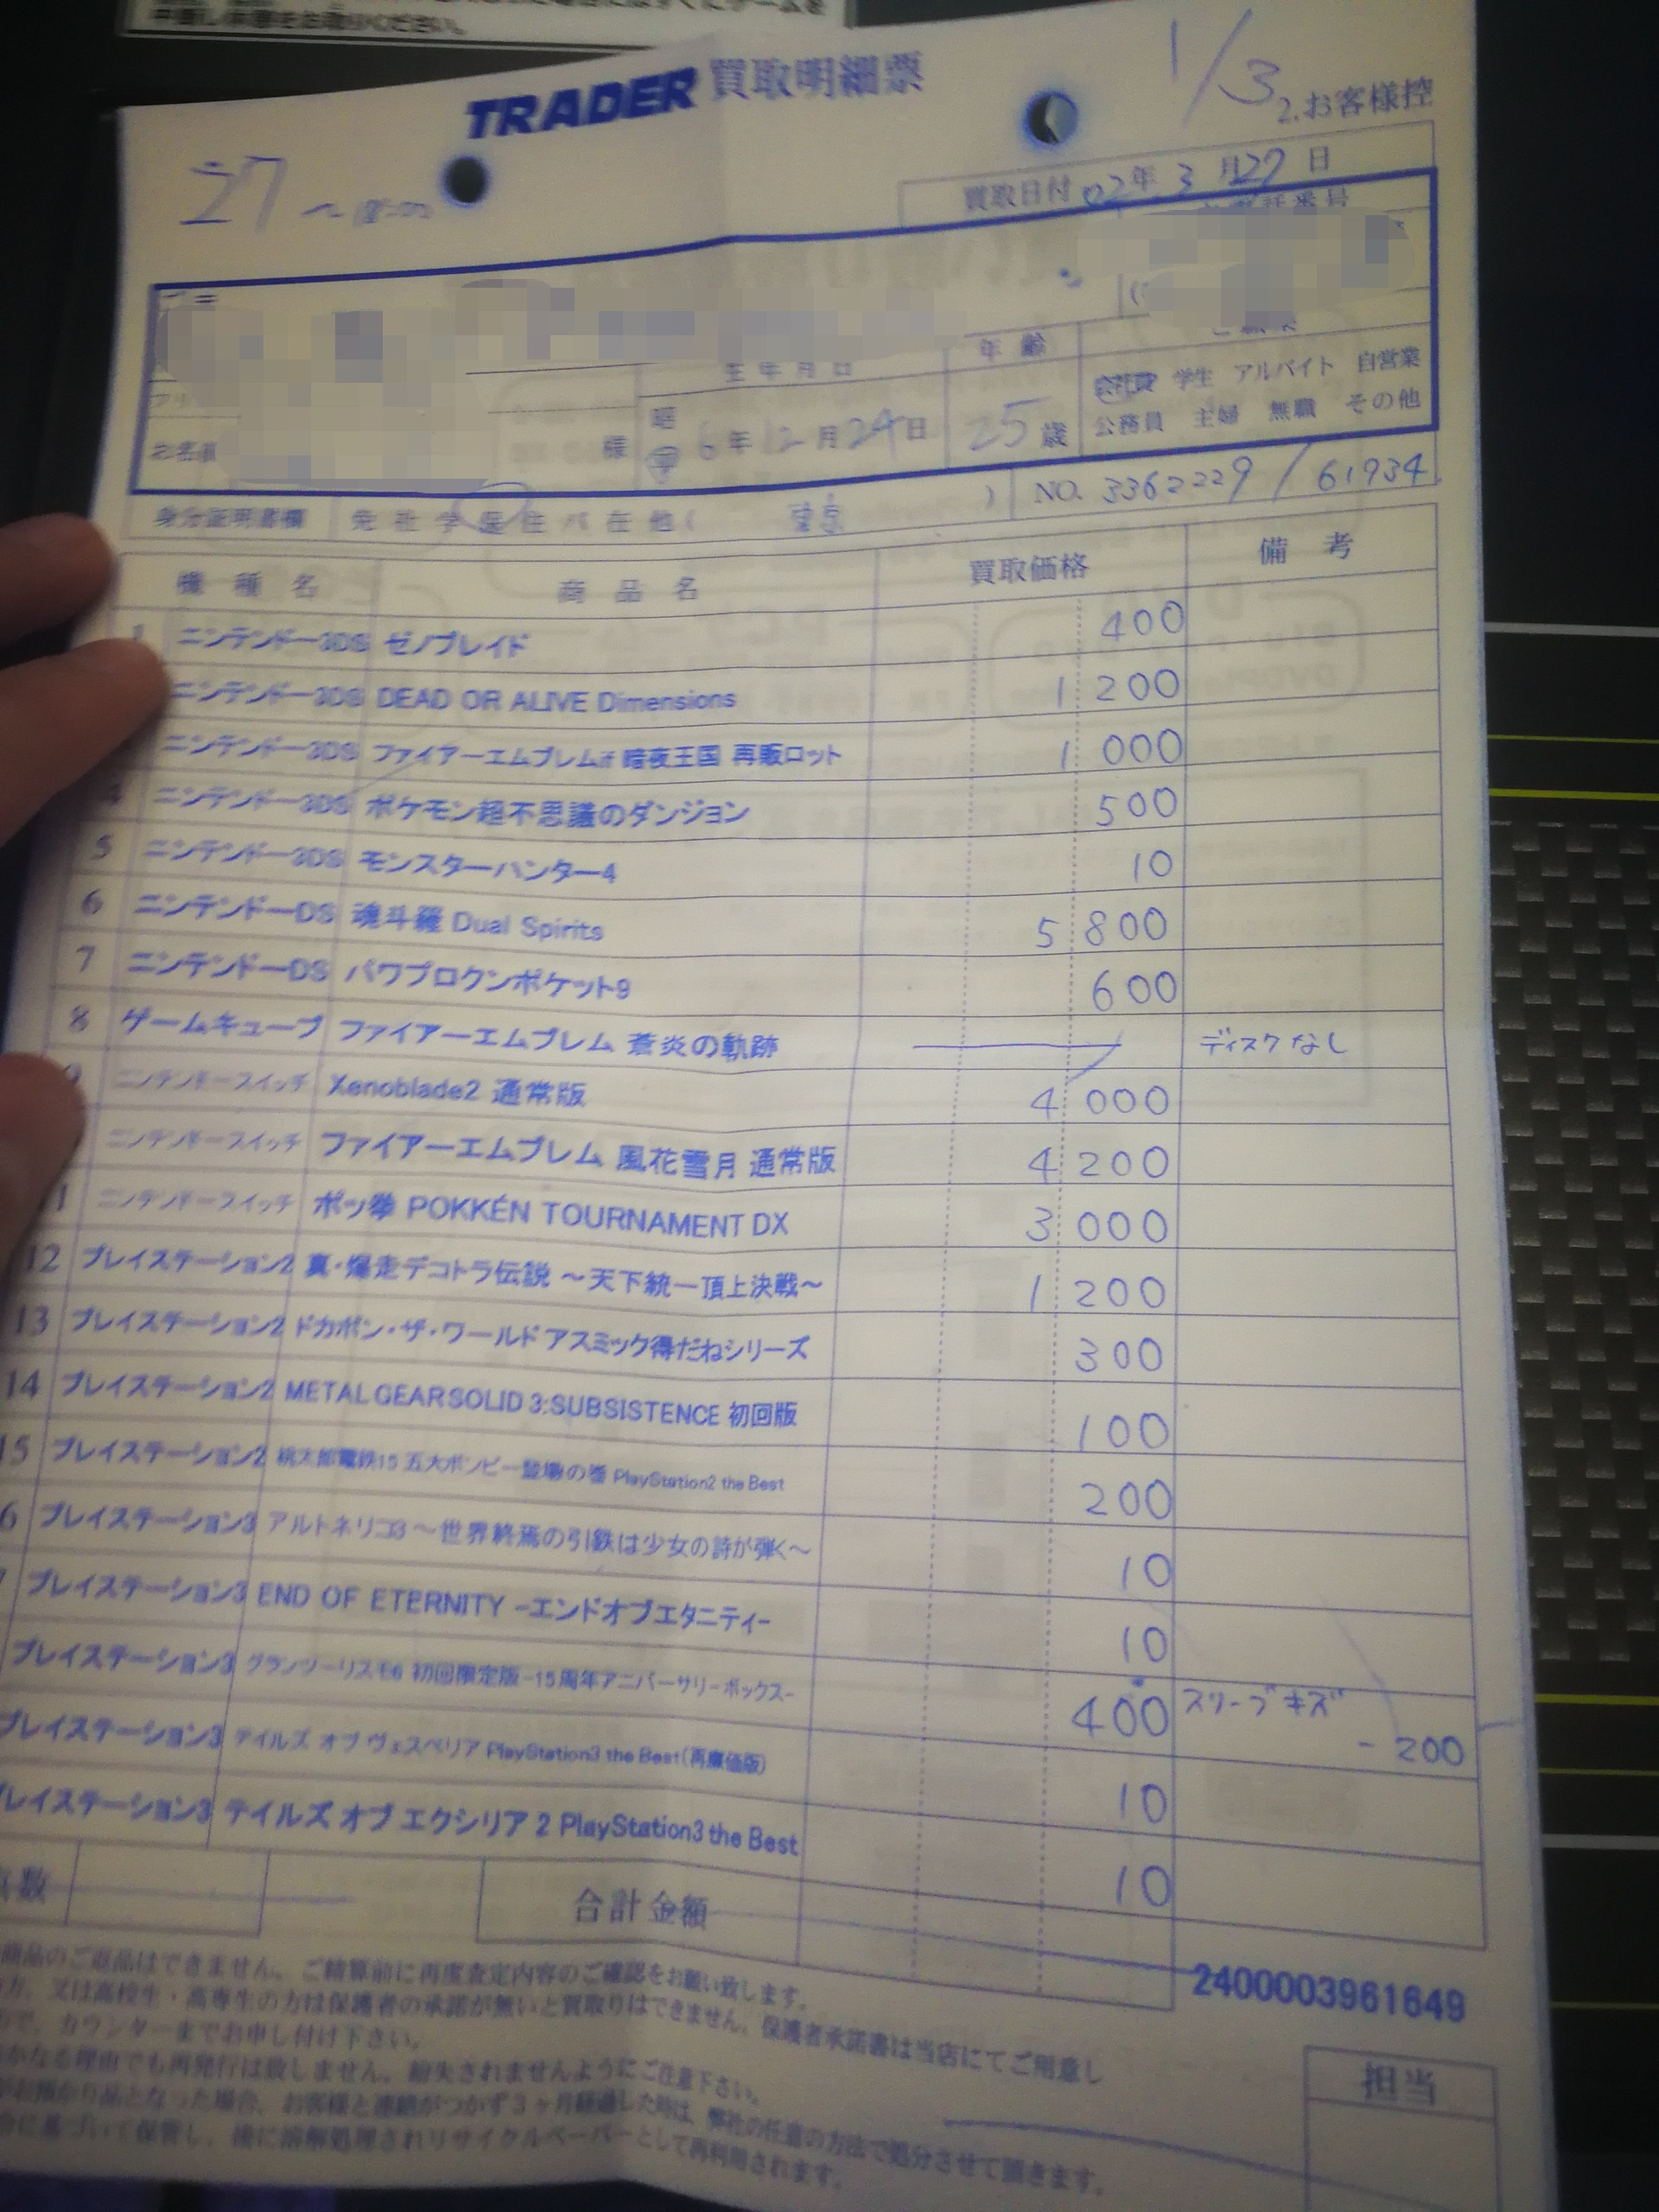 申し承諾をお取りください。
TRADER 買取明細票
1/3
2.お客様控
27
買取日付 02年 3 月 27 日
生年月日
年 齢
会社員 学生 アルバイト 自営業
公務員 主婦 無職 その他
様
昭 平 6年 12月 24日
25歳
NO. 3362229/61934
身分証明書欄
免 社 学 住 パ 在 他( 東京 )
機種名 商品名 買取価格 備考
1 ニンテンドー3DS ゼノブレイド 400
ニンテンドー3DS DEAD OR ALIVE Dimensions 1 200
ニンテンドー3DS ファイアーエムブレムif 暗夜王国 再販ロット 1 000
4 ニンテンドー3DS ポケモン超不思議のダンジョン 500
5 ニンテンドー3DS モンスターハンター4 10
6 ニンテンドーDS 魂斗羅 Dual Spirits 5 800
7 ニンテンドーDS パワプロクンポケット9 600
8 ゲームキューブ ファイアーエムブレム 蒼炎の軌跡 ディスクなし
9 ニンテンドースイッチ Xenoblade2 通常版 4 000
ニンテンドースイッチ ファイアーエムブレム 風花雪月 通常版 4 200
1 ニンテンドースイッチ ポッ拳 POKKÉN TOURNAMENT DX 3 000
12 プレイステーション2 真・爆走デコトラ伝説 ～天下統一頂上決戦～ 1 200
13 プレイステーション2 ドカポン・ザ・ワールド アスミック得だねシリーズ 300
14 プレイステーション2 METAL GEAR SOLID 3:SUBSISTENCE 初回版 100
15 プレイステーション2 桃太郎電鉄15 五大ボンビー登場の巻 PlayStation2 the Best 200
6 プレイステーション3 アルトネリコ3～世界終焉の引鉄は少女の詩が弾く～ 10
7 プレイステーション3 END OF ETERNITY -エンドオブエタニティ- 10
プレイステーション3 グランツーリスモ6 初回限定版-15周年アニバーサリーボックス- 400 スリーブキズ -200
プレイステーション3 テイルズ オブ ヴェスペリア PlayStation3 the Best(再廉価版) 10
プレイステーション3 テイルズ オブ エクシリア 2 PlayStation3 the Best 10
数 合計金額
2400003961649
商品のご返品はできません。ご精算前に再度査定内容のご確認をお願い致します。
方、又は高校生・高専生の方は保護者の承諾が無いと買取りはできません。保護者承諾書は当店にてご用意し
で、カウンターまでお申し付け下さい。
かなる理由でも再発行は致しません。紛失されませんようにご注意下さい。
がお預かり品となった場合、お客様と連絡がつかず3ヶ月経過した時は、弊社の任意の方法で処分させて頂きます。
に基づいて保管し、後に溶解処理されリサイクルペーパーとして再利用されます。
担当